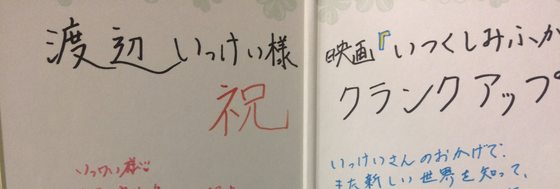 渡辺いっけい様
祝
いっけい様♡
映画『いつくしみふか
クランクアップ
いっけいさんのおかげで、
また新しい世界を知って、